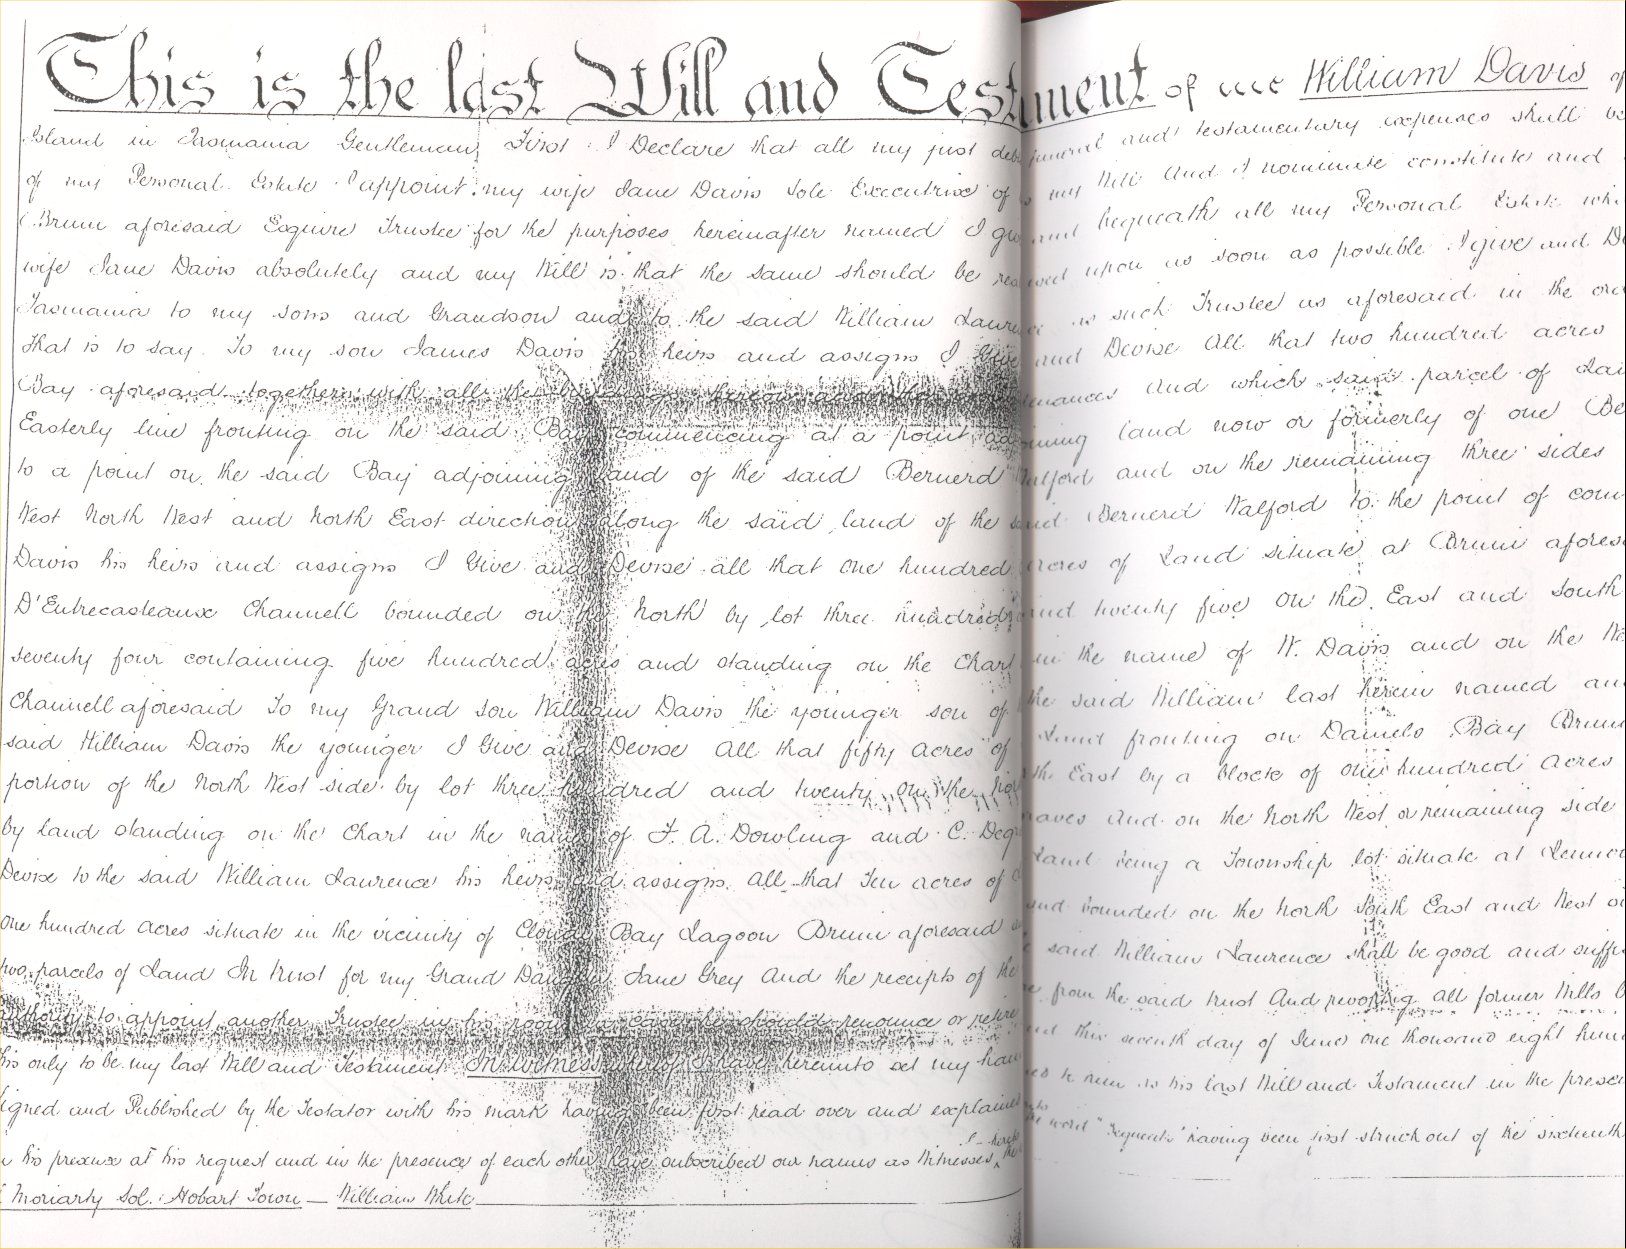 This is the last Will and Testament of me William Davis
Island in Tasmania Gentleman First I Declare that all my just funeral and testamentary expenses shall be
of my Personal Estate I appoint my wife Jane Davis Sole Executrix of my Will And I nominate constitute and
Bruni aforesaid Esquire Trustee for the purposes hereinafter named I and bequeath all my Personal Estate
wife Jane Davis absolutely and my Will is that the same should be upon as soon as possible I give and
Tasmania to my sons and Grandson and to the said William as such Trustee as aforesaid in the
that is to say. To my son James Davis his heirs and assigns I Give and Devise all that two hundred acres
Bay aforesaid together with all the buildings thereon And which said parcel of
Easterly line fronting on the said Bay commencing at a point land now or formerly of one
to a point on the said Bay adjoining land of the said Bernerd Walford and on the remaining three sides
West North West and North East direction along the said land of the said Bernerd Walford to the point of
Davis his heirs and assigns I Give and Devise all that One hundred acres of Land situate at Bruni
D'Entrecasteaux Channell bounded on the North by lot three hundred and twenty five On the East and South
seventy four containing five hundred acres and standing on the Chart in the name of W. Davis and on the
Channell aforesaid To my Grand Son William Davis the younger son of the said William last herein named
said William Davis the younger I Give and Devise all that fifty acres of Land fronting on Daniels Bay
portion of the North West side by lot three hundred and twenty on the East by a block of One hundred Acres
by land standing on the Chart in the name of F. A. Dowling and C. And on the North West or remaining side
Devise to the said William Laurence his heirs and assigns all that Ten acres of Land being a Township lot situate at
One hundred Acres situate in the vicinity of Cloudy Bay Lagoon Bruni aforesaid and bounded on the North South East and West
two parcels of Land In trust for my Grand Daughter Jane Grey And the receipts of the said William Laurence shall be good and
authority to appoint another Trustee in his room in case he should renounce or retire from the said trust And revoking all former Wills
this only to be my last Will and Testament In witness whereof I have hereunto set my this seventh day of June one thousand eight
signed and Published by the Testator with his mark having been first read over and explained to him as his last Will and Testament in the
in his presence at his request and in the presence of each other have subscribed our names as Witnesses, the word having been first struck out of the sixteenth
Moriarty Sol. Hobart Town — William White